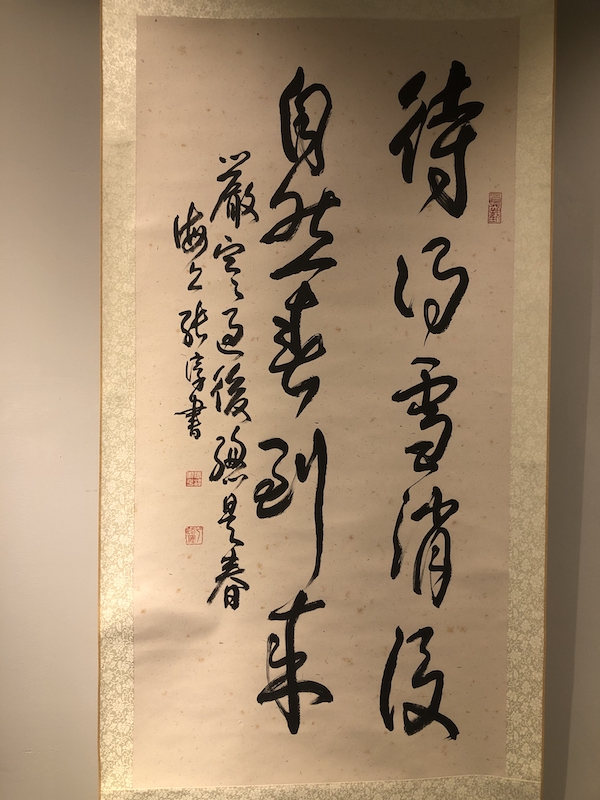 待得雪消後
自然春到來
嚴寒過後總是春
海上張淳書